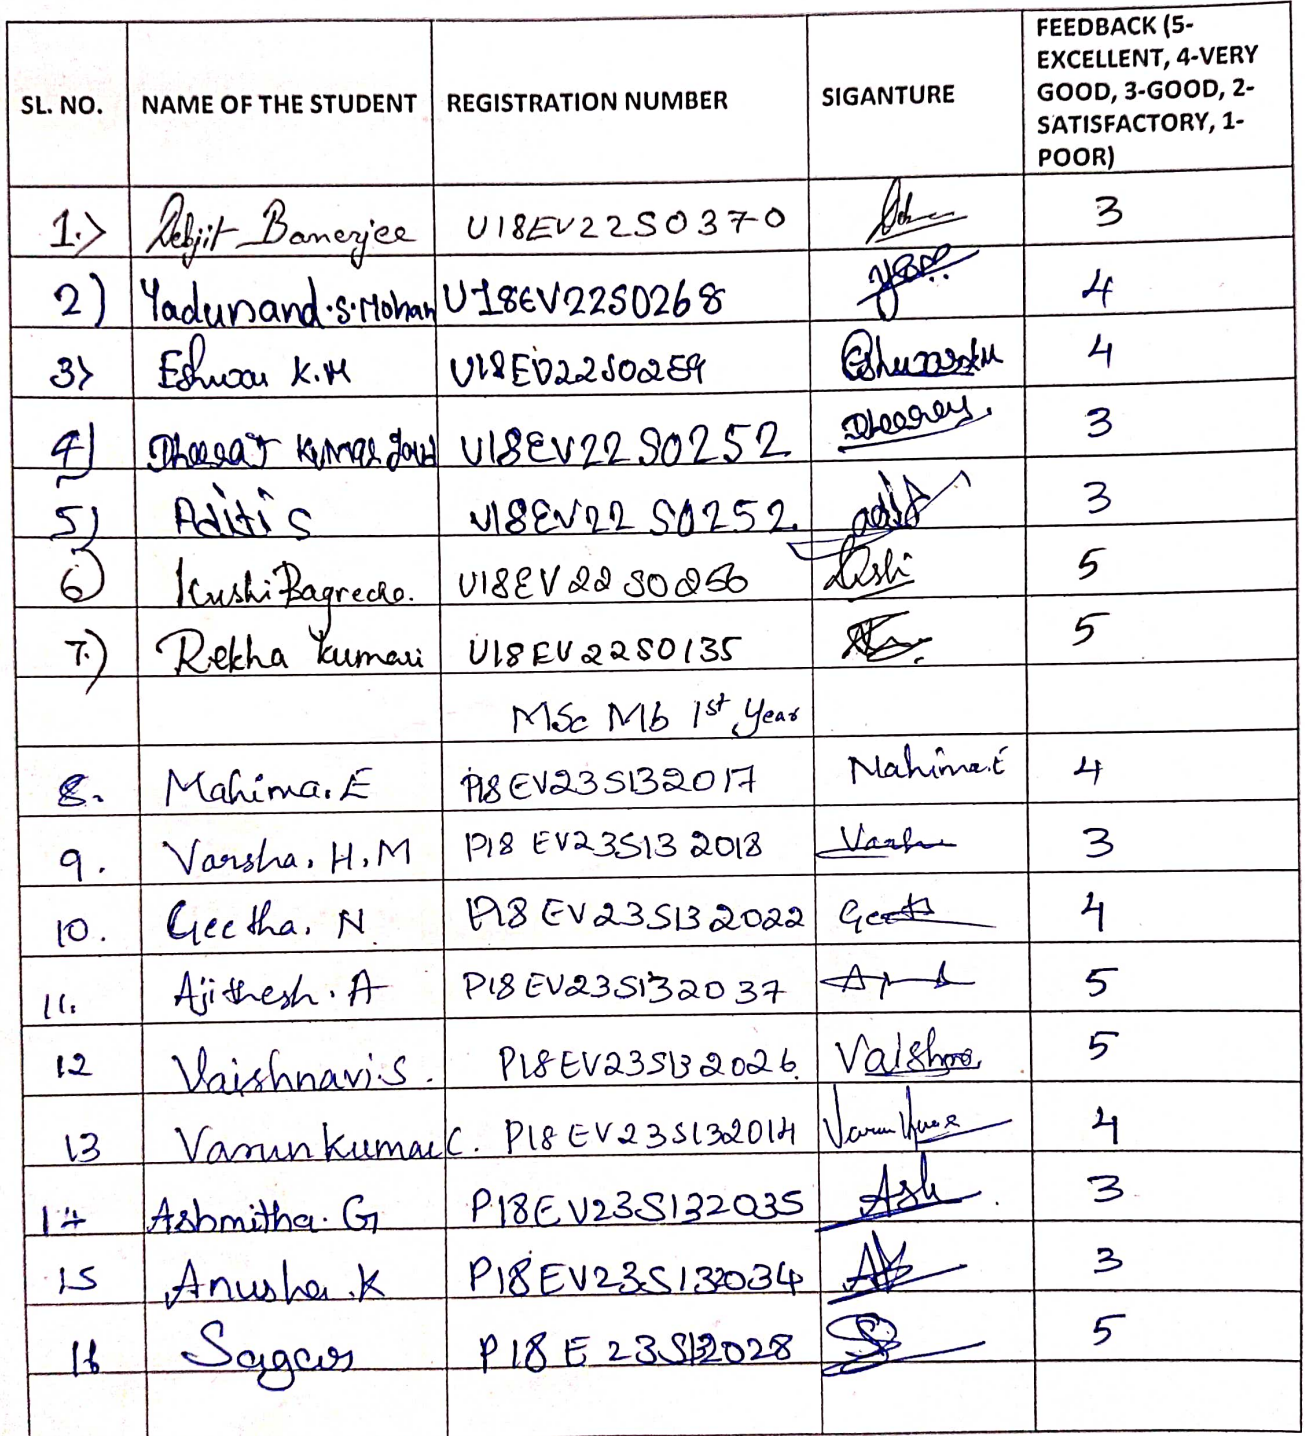 SL. NO. NAME OF THE STUDENT REGISTRATION NUMBER SIGANTURE FEEDBACK (5-
EXCELLENT, 4-VERY
GOOD, 3-GOOD, 2-
SATISFACTORY, 1-
POOR)
1.> Debjit Banerjee U18EV22S0370 3
2) Yadunand.S.Mohan U18EV22S0268 4
3> Eshwar K.M U18EV22S0259 4
4) Dheeraj Kumar U18EV22S0252 3
5) Aditi S U18EV22S0252 3
6) Kushi Bagrecha. U18EV22S0256 5
7.) Rekha Kumari U18EV22S0135 5
MSc Mb 1st Year
8. Mahima.E P18EV23S132017 Mahima.E 4
9. Varsha. H.M P18 EV23S13 2018 Varsha 3
10. Geetha. N P18 EV23S132022 Geeta 4
11. Ajithesh. A P18EV23S132037 5
12 Vaishnavi.S. P18EV23S132026. 5
13 Varun kumar C. P18EV23S132014 4
14 Ashmitha. G P18EV23S132035 Ash 3
15 Anusha.K P18EV23S132034 3
16 Sagar P18 E 23S132028 5